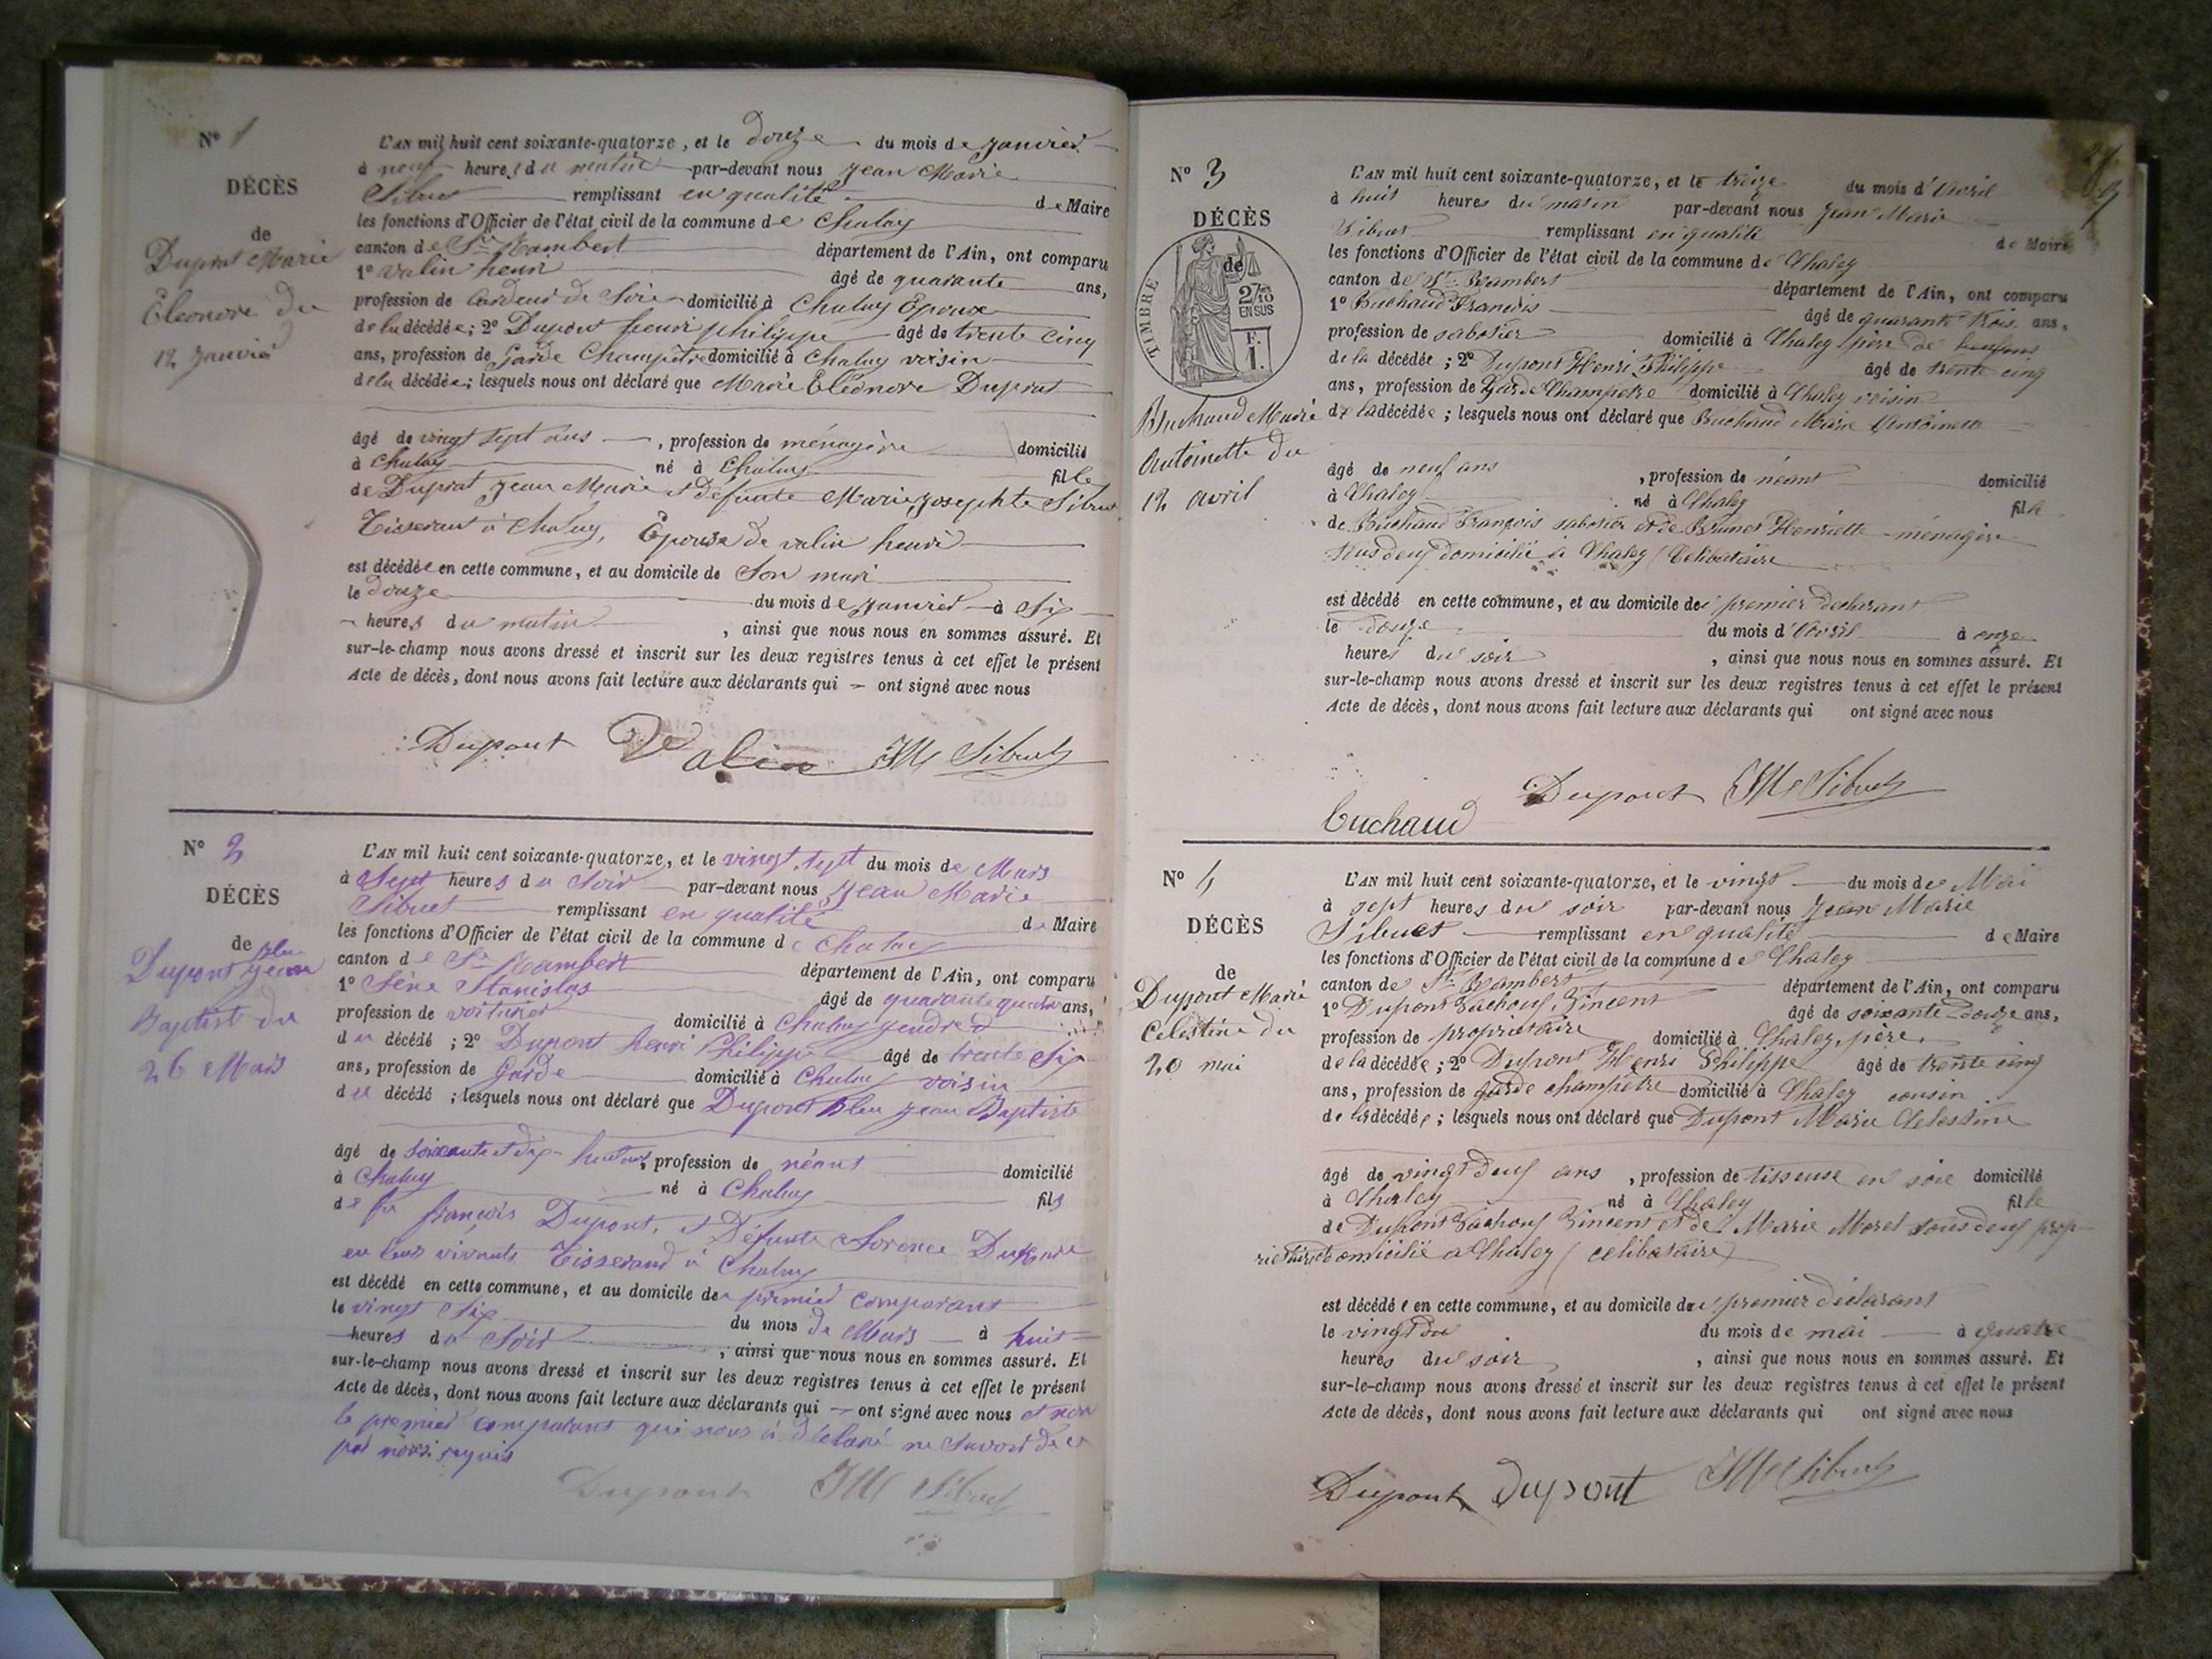 N° 1
DÉCÈS
de
Duprat Marie
Eléonore du
12 Janvier
L'AN mil huit cent soixante-quatorze, et le douze du mois de Janvier
à neuf heures du matin par-devant nous Jean Marie
Sibuet remplissant en qualité de Maire
les fonctions d'Officier de l'état civil de la commune de Chaley
canton de St Rambert département de l'Ain, ont comparu
1° Valin henri âgé de quarante ans,
profession de Cardeur de Soie domicilié à Chaley Epoux
de la décédée; 2° Dupont henri philippe âgé de trente cinq
ans, profession de Garde Champêtre domicilié à Chaley voisin
de la décédée; lesquels nous ont déclaré que Marie Eléonore Duprat
âgé de vingt sept ans, profession de ménagère domicilié
à Chaley né à Chaley fille
de Duprat Jean Marie et défunte Marie Josephte Sibuet
Tisserant à Chaley, Epouse de valin henri
est décédée en cette commune, et au domicile de Son mari
le douze du mois de Janvier à Six
heures du matin, ainsi que nous nous en sommes assuré. Et
sur-le-champ nous avons dressé et inscrit sur les deux registres tenus à cet effet le présent
Acte de décès, dont nous avons fait lecture aux déclarants qui ont signé avec nous
Dupont Valin JM Sibuet
N° 2
DÉCÈS
de
Dupont Bleu Jean
Baptist du
26 Mars
L'AN mil huit cent soixante-quatorze, et le vingt sept du mois de Mars
à Sept heures du Soir par-devant nous Jean Marie
Sibuet remplissant en qualité de Maire
les fonctions d'Officier de l'état civil de la commune de Chaley
canton de St Rambert département de l'Ain, ont comparu
1° Sène Stanislas âgé de quarante quatre ans,
profession de voiturier domicilié à Chaley gendre
du décédé; 2° Dupont henri Philippe âgé de trente Six
ans, profession de Garde domicilié à Chaley voisin
du décédé; lesquels nous ont déclaré que Dupont Bleu Jean Baptiste
âgé de soixante et dix huit ans, profession de néant domicilié
à Chaley né à Chaley fils
de feu françois Dupont, et Défunte
en leurs vivants Tisserand à Chaley
est décédé en cette commune, et au domicile de premier comparant
le vingt Six du mois de Mars à huit
heures du Soir, ainsi que nous nous en sommes assuré. Et
sur-le-champ nous avons dressé et inscrit sur les deux registres tenus à cet effet le présent
Acte de décès, dont nous avons fait lecture aux déclarants qui ont signé avec nous et non
le premier comparant qui nous à déclaré ne Savoir de ce
par nous requis
Dupont JM Sibuet
N° 3
DÉCÈS
de
TIMBRE
2/10 EN SUS
F. 1.
Buchaud Marie
Antoinette du
12 avril
L'AN mil huit cent soixante-quatorze, et le treize du mois d'Avril
à huit heures du matin par-devant nous Jean Marie
Sibuet remplissant en qualité de Maire
les fonctions d'Officier de l'état civil de la commune de Chaley
canton de St Rambert département de l'Ain, ont comparu
1° Buchaud François âgé de quarante trois ans,
profession de sabotier domicilié à Chaley père de
de la décédée; 2° Dupont Henri Philippe âgé de trente cinq
ans, profession de Garde Champetre domicilié à Chaley voisin
de la décédée; lesquels nous ont déclaré que Buchaud Marie Antoinette
âgé de neuf ans, profession de néant domicilié
à Chaley né à Chaley fille
de Buchaud François sabotier et de Brunet Henriette ménagère
tous deux domicilié à Chaley (Celibataire
est décédé en cette commune, et au domicile de premier déclarant
le douze du mois d'Avril à onze
heures du soir, ainsi que nous nous en sommes assuré. Et
sur-le-champ nous avons dressé et inscrit sur les deux registres tenus à cet effet le présent
Acte de décès, dont nous avons fait lecture aux déclarants qui ont signé avec nous
Dupont JM Sibuet
buchaud
N° 4
DÉCÈS
de
Dupont Marie
Celestine du
20 mai
L'AN mil huit cent soixante-quatorze, et le vingt du mois de Mai
à sept heures du soir par-devant nous Jean Marie
Sibuet remplissant en qualité de Maire
les fonctions d'Officier de l'état civil de la commune de Chaley
canton de St Rambert département de l'Ain, ont comparu
1° Dupont Vincent âgé de soixante douze ans,
profession de propriétaire domicilié à Chaley, père
de la décédée; 2° Dupont Henri Philippe âgé de trente cinq
ans, profession de garde champêtre domicilié à Chaley cousin
de la décédée; lesquels nous ont déclaré que Dupont Marie Celestine
âgé de vingt deux ans, profession de tisseuse en soie domicilié
à Chaley né à Chaley fille
de Dupont Vincent et de Marie Morel tous deux prop
riétaire domicilié à Chaley (celibataire)
est décédée en cette commune, et au domicile du premier déclarant
le vingt du mois de mai à quatre
heures du soir, ainsi que nous nous en sommes assuré. Et
sur-le-champ nous avons dressé et inscrit sur les deux registres tenus à cet effet le présent
Acte de décès, dont nous avons fait lecture aux déclarants qui ont signé avec nous
Dupont Dupont JM Sibuet